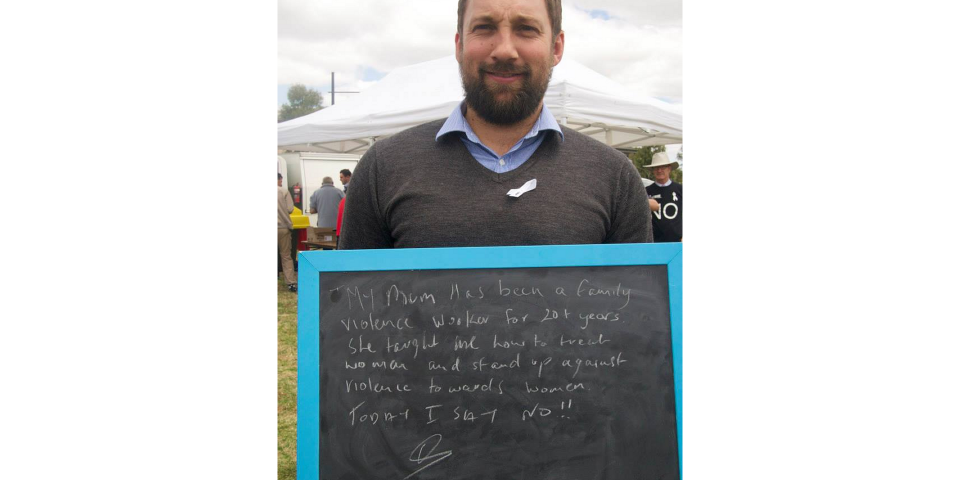 NO
My Mum Has been a family
violence worker for 20+ years
She taught me how to treat
woman and stand up against
violence towards women.
TODAY I SAY NO!!